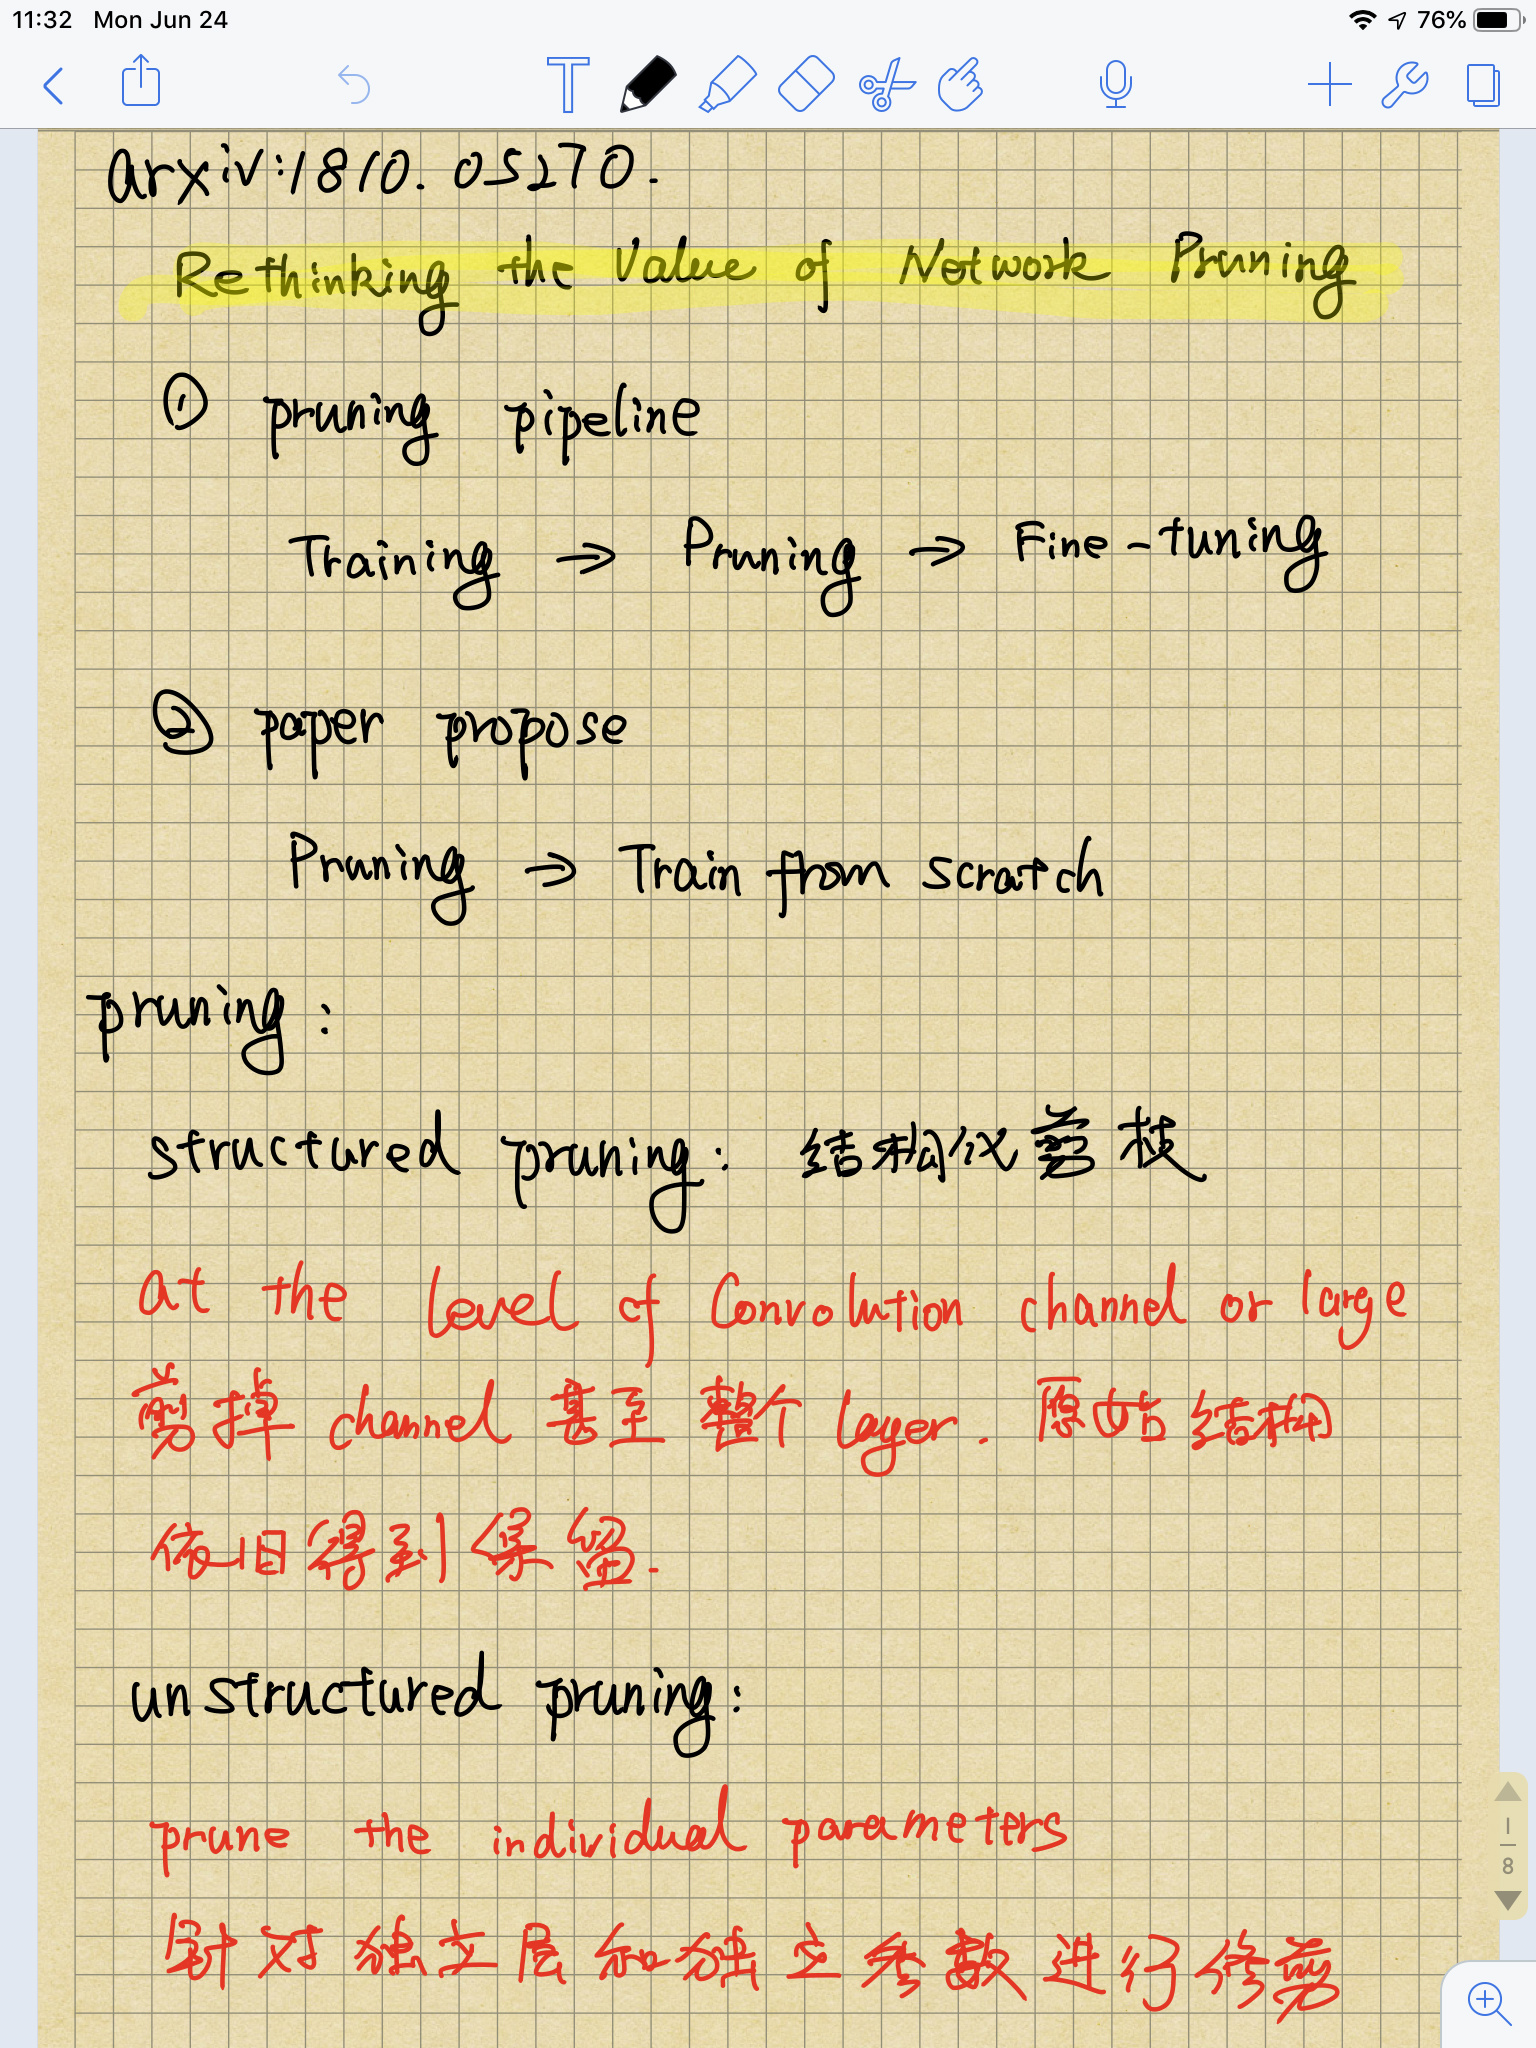 11:32 Mon Jun 24 76%
arxiv:1810.05270.
Rethinking the Value of Network Pruning
① pruning pipeline
Training → Pruning → Fine-tuning
② paper propose
Pruning → Train from scratch
pruning:
structured pruning: 结构仪剪枝
at the level of Convolution channel or large
剪掉 channel 甚至 整个 layer. 原始结构
依旧得到保留.
unstructured pruning:
prune the individual parameters
针对独立层和独立参数进行修剪
1
8